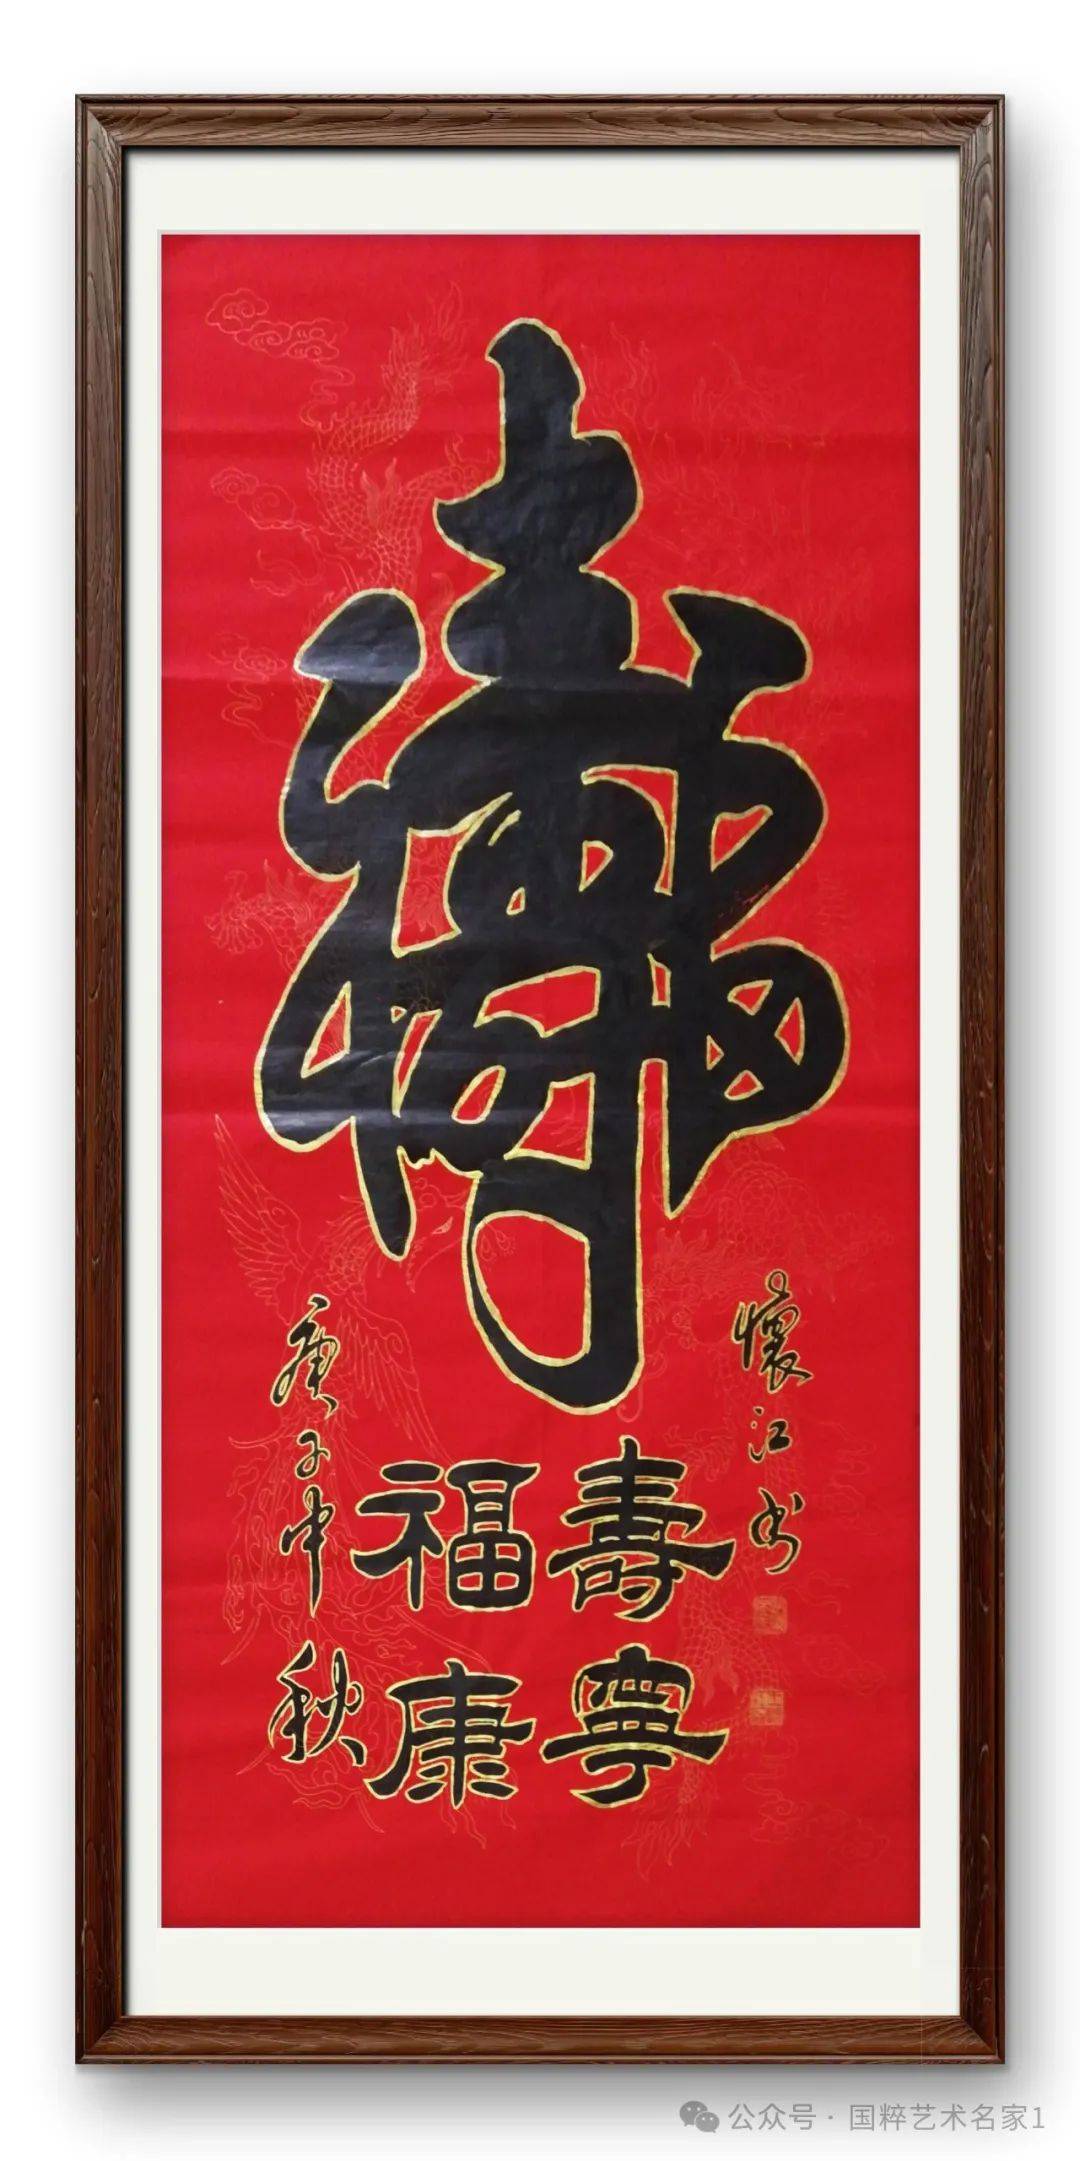 懷江书
壽寧
福康
庚子中秋
公众号·国粹艺术名家1